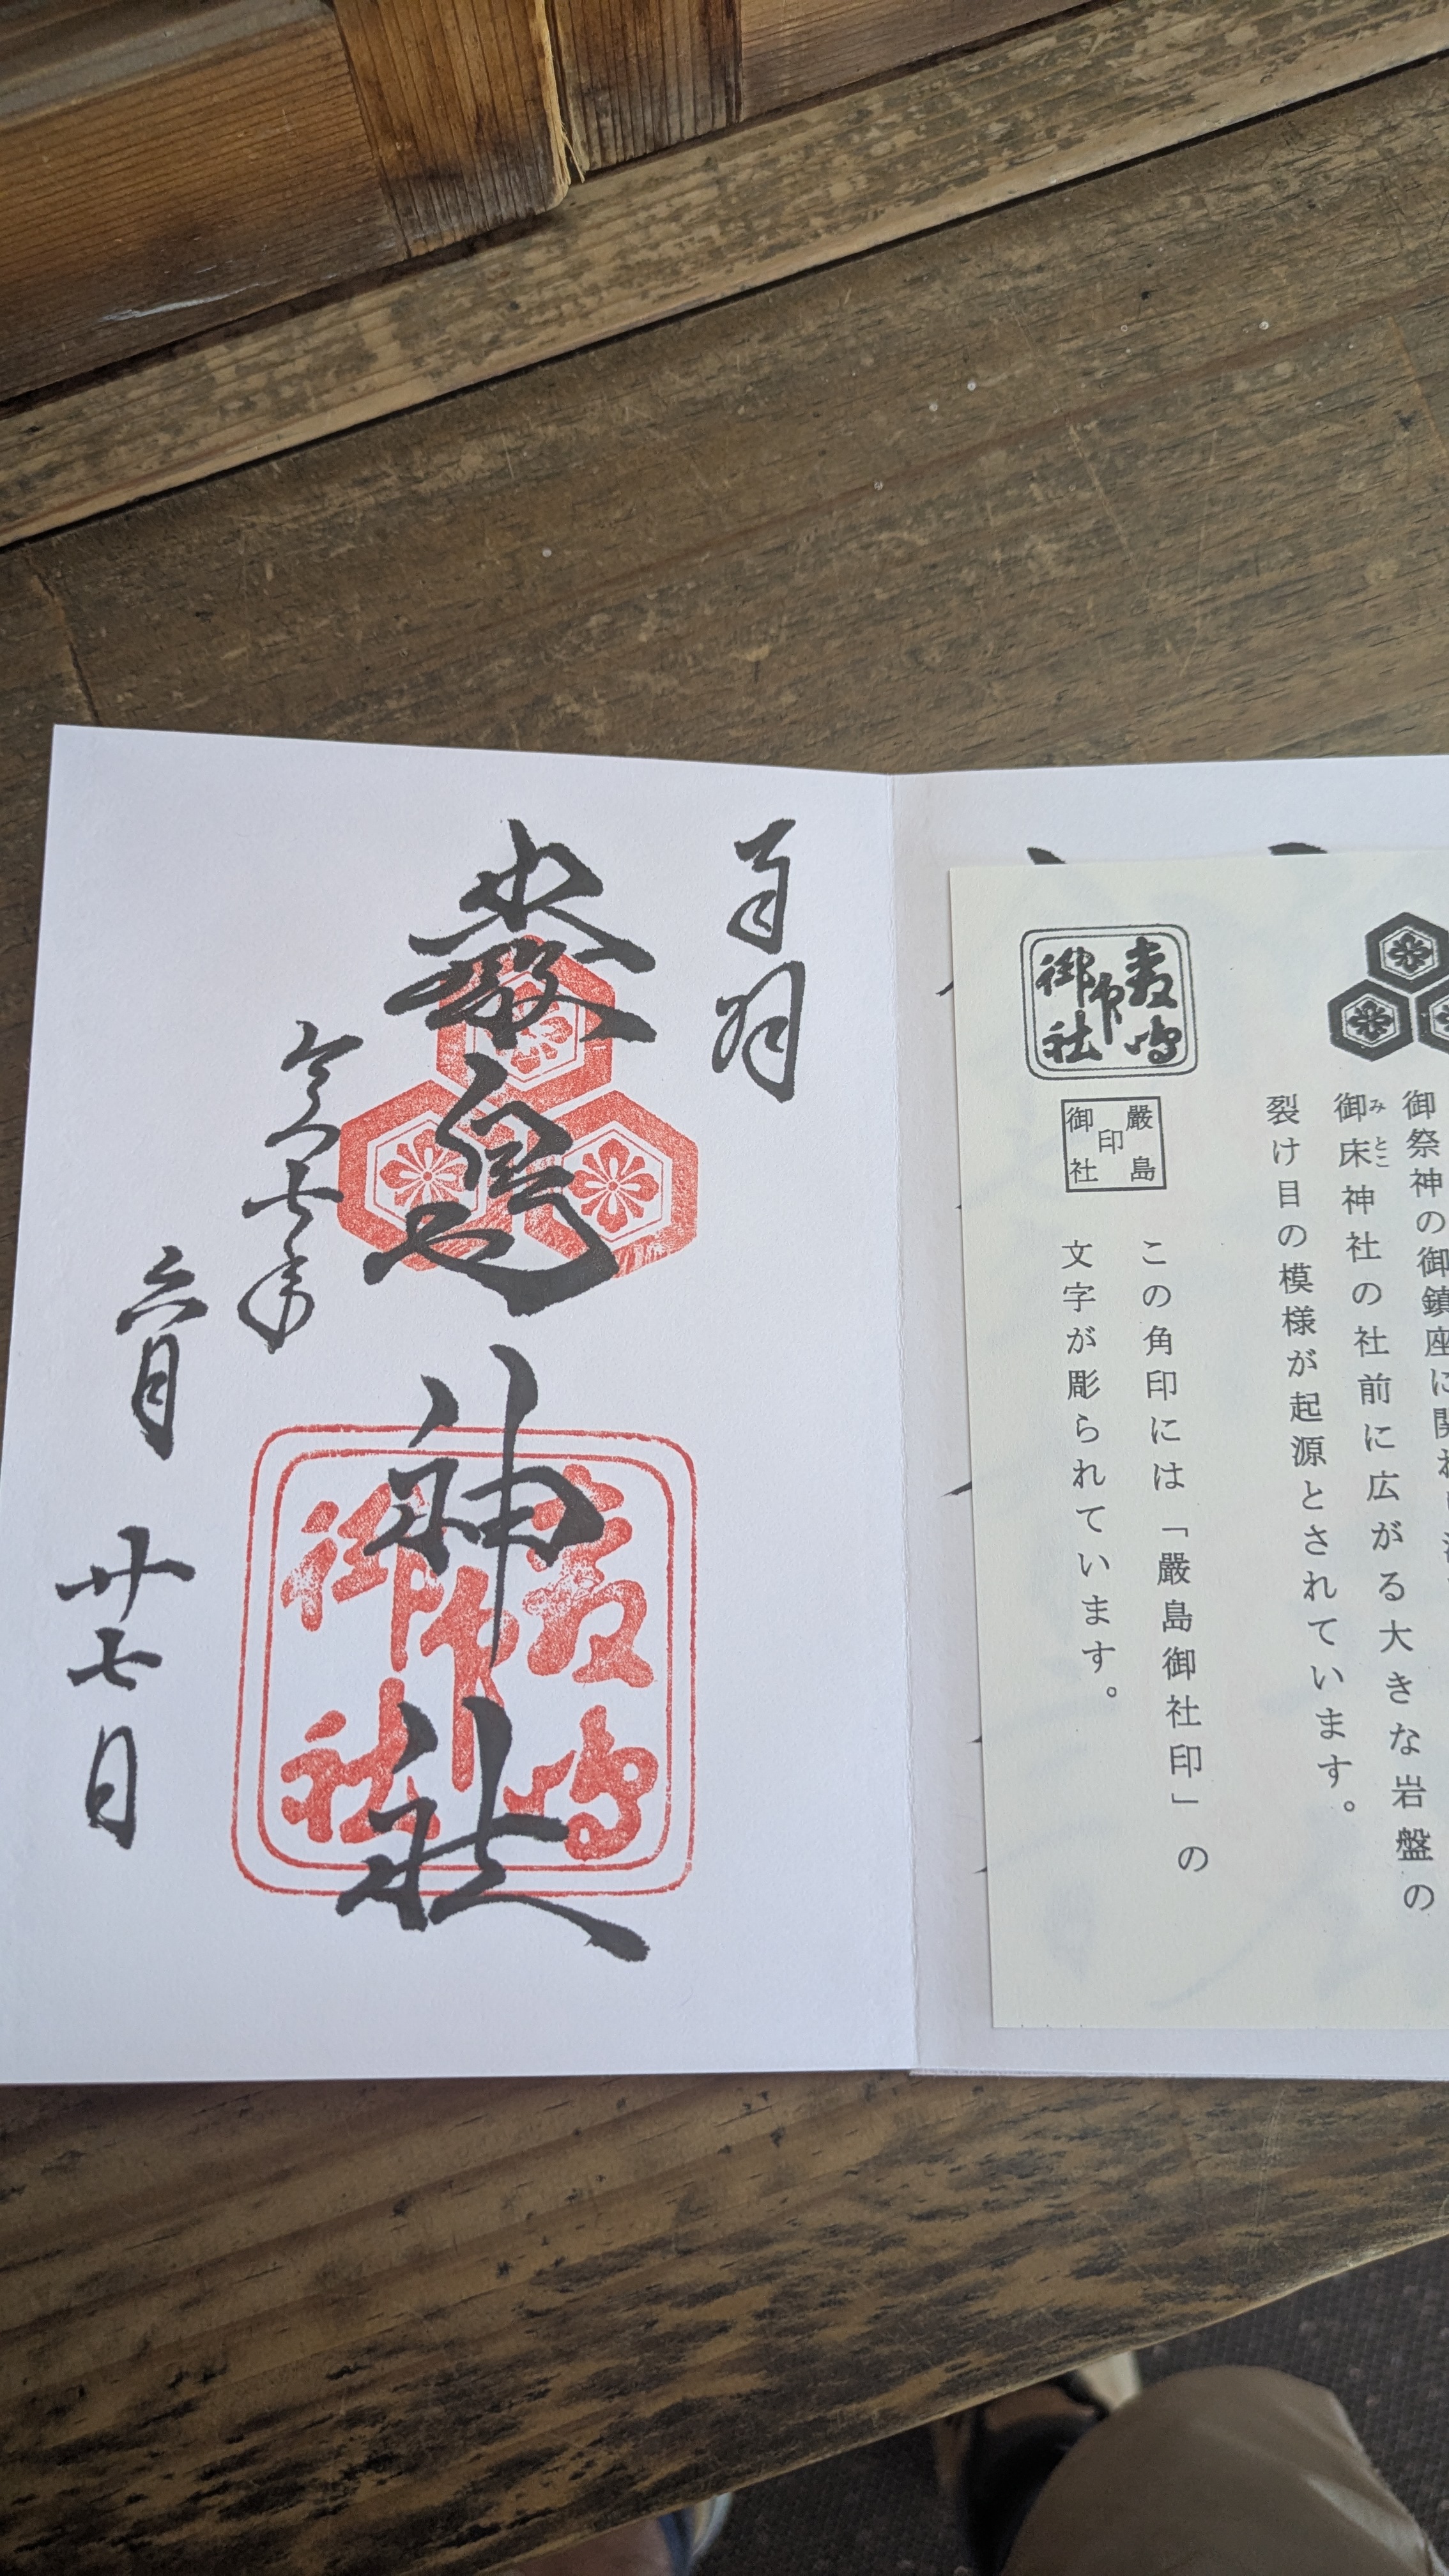 御祭神の御鎮座に関わり
御床神社の社前に広がる大きな岩盤の
みとこ
裂け目の模様が起源とされています。
嚴島
印
御社
嚴島
印
御社
この角印には「嚴島御社印」の
文字が彫られています。
嚴島神社
嚴島
印
御社
令和七年
六月
廿七日